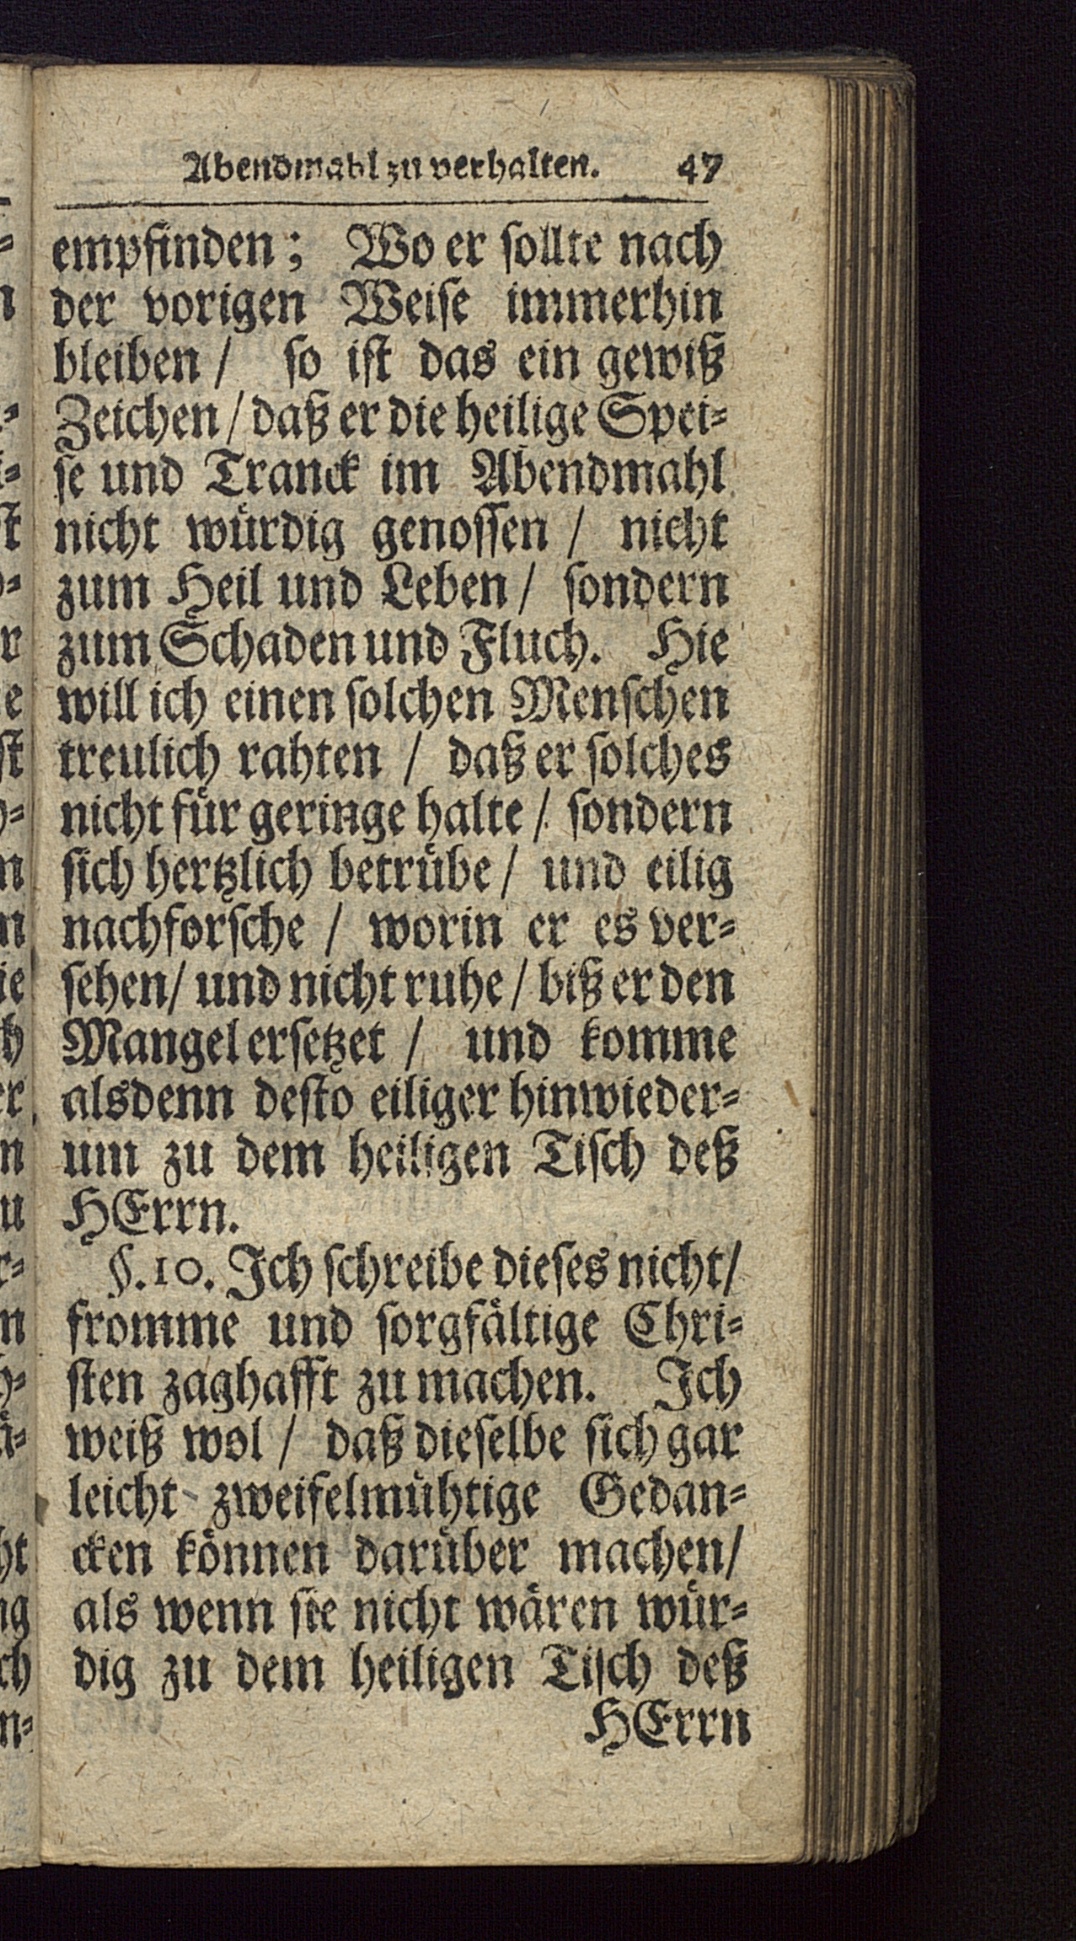 Abendmahl zu verhalten. 47
empfinden; Wo er sollte nach
der vorigen Weise immerhin
bleiben / so ist das ein gewiß
Zeichen / daß er die heilige Spei-
se und Tranck im Abendmahl
nicht würdig genossen / nicht
zum Heil und Leben / sondern
zum Schaden und Fluch. Hie
will ich einen solchen Menschen
treulich rahten / daß er solches
nicht für geringe halte / sondern
sich hertzlich betrübe / und eilig
nachforsche / worin er es ver-
sehen / und nicht ruhe / biß er den
Mangel ersetzet / und komme
alsdenn desto eiliger hinwieder-
um zu dem heiligen Tisch deß
HErrn.
§. 10. Ich schreibe dieses nicht /
fromme und sorgfältige Chri-
sten zaghafft zu machen. Ich
weiß wol / daß dieselbe sich gar
leicht zweifelmühtige Gedan-
cken können darüber machen /
als wenn sie nicht wären wür-
dig zu dem heiligen Tisch deß
HErrn